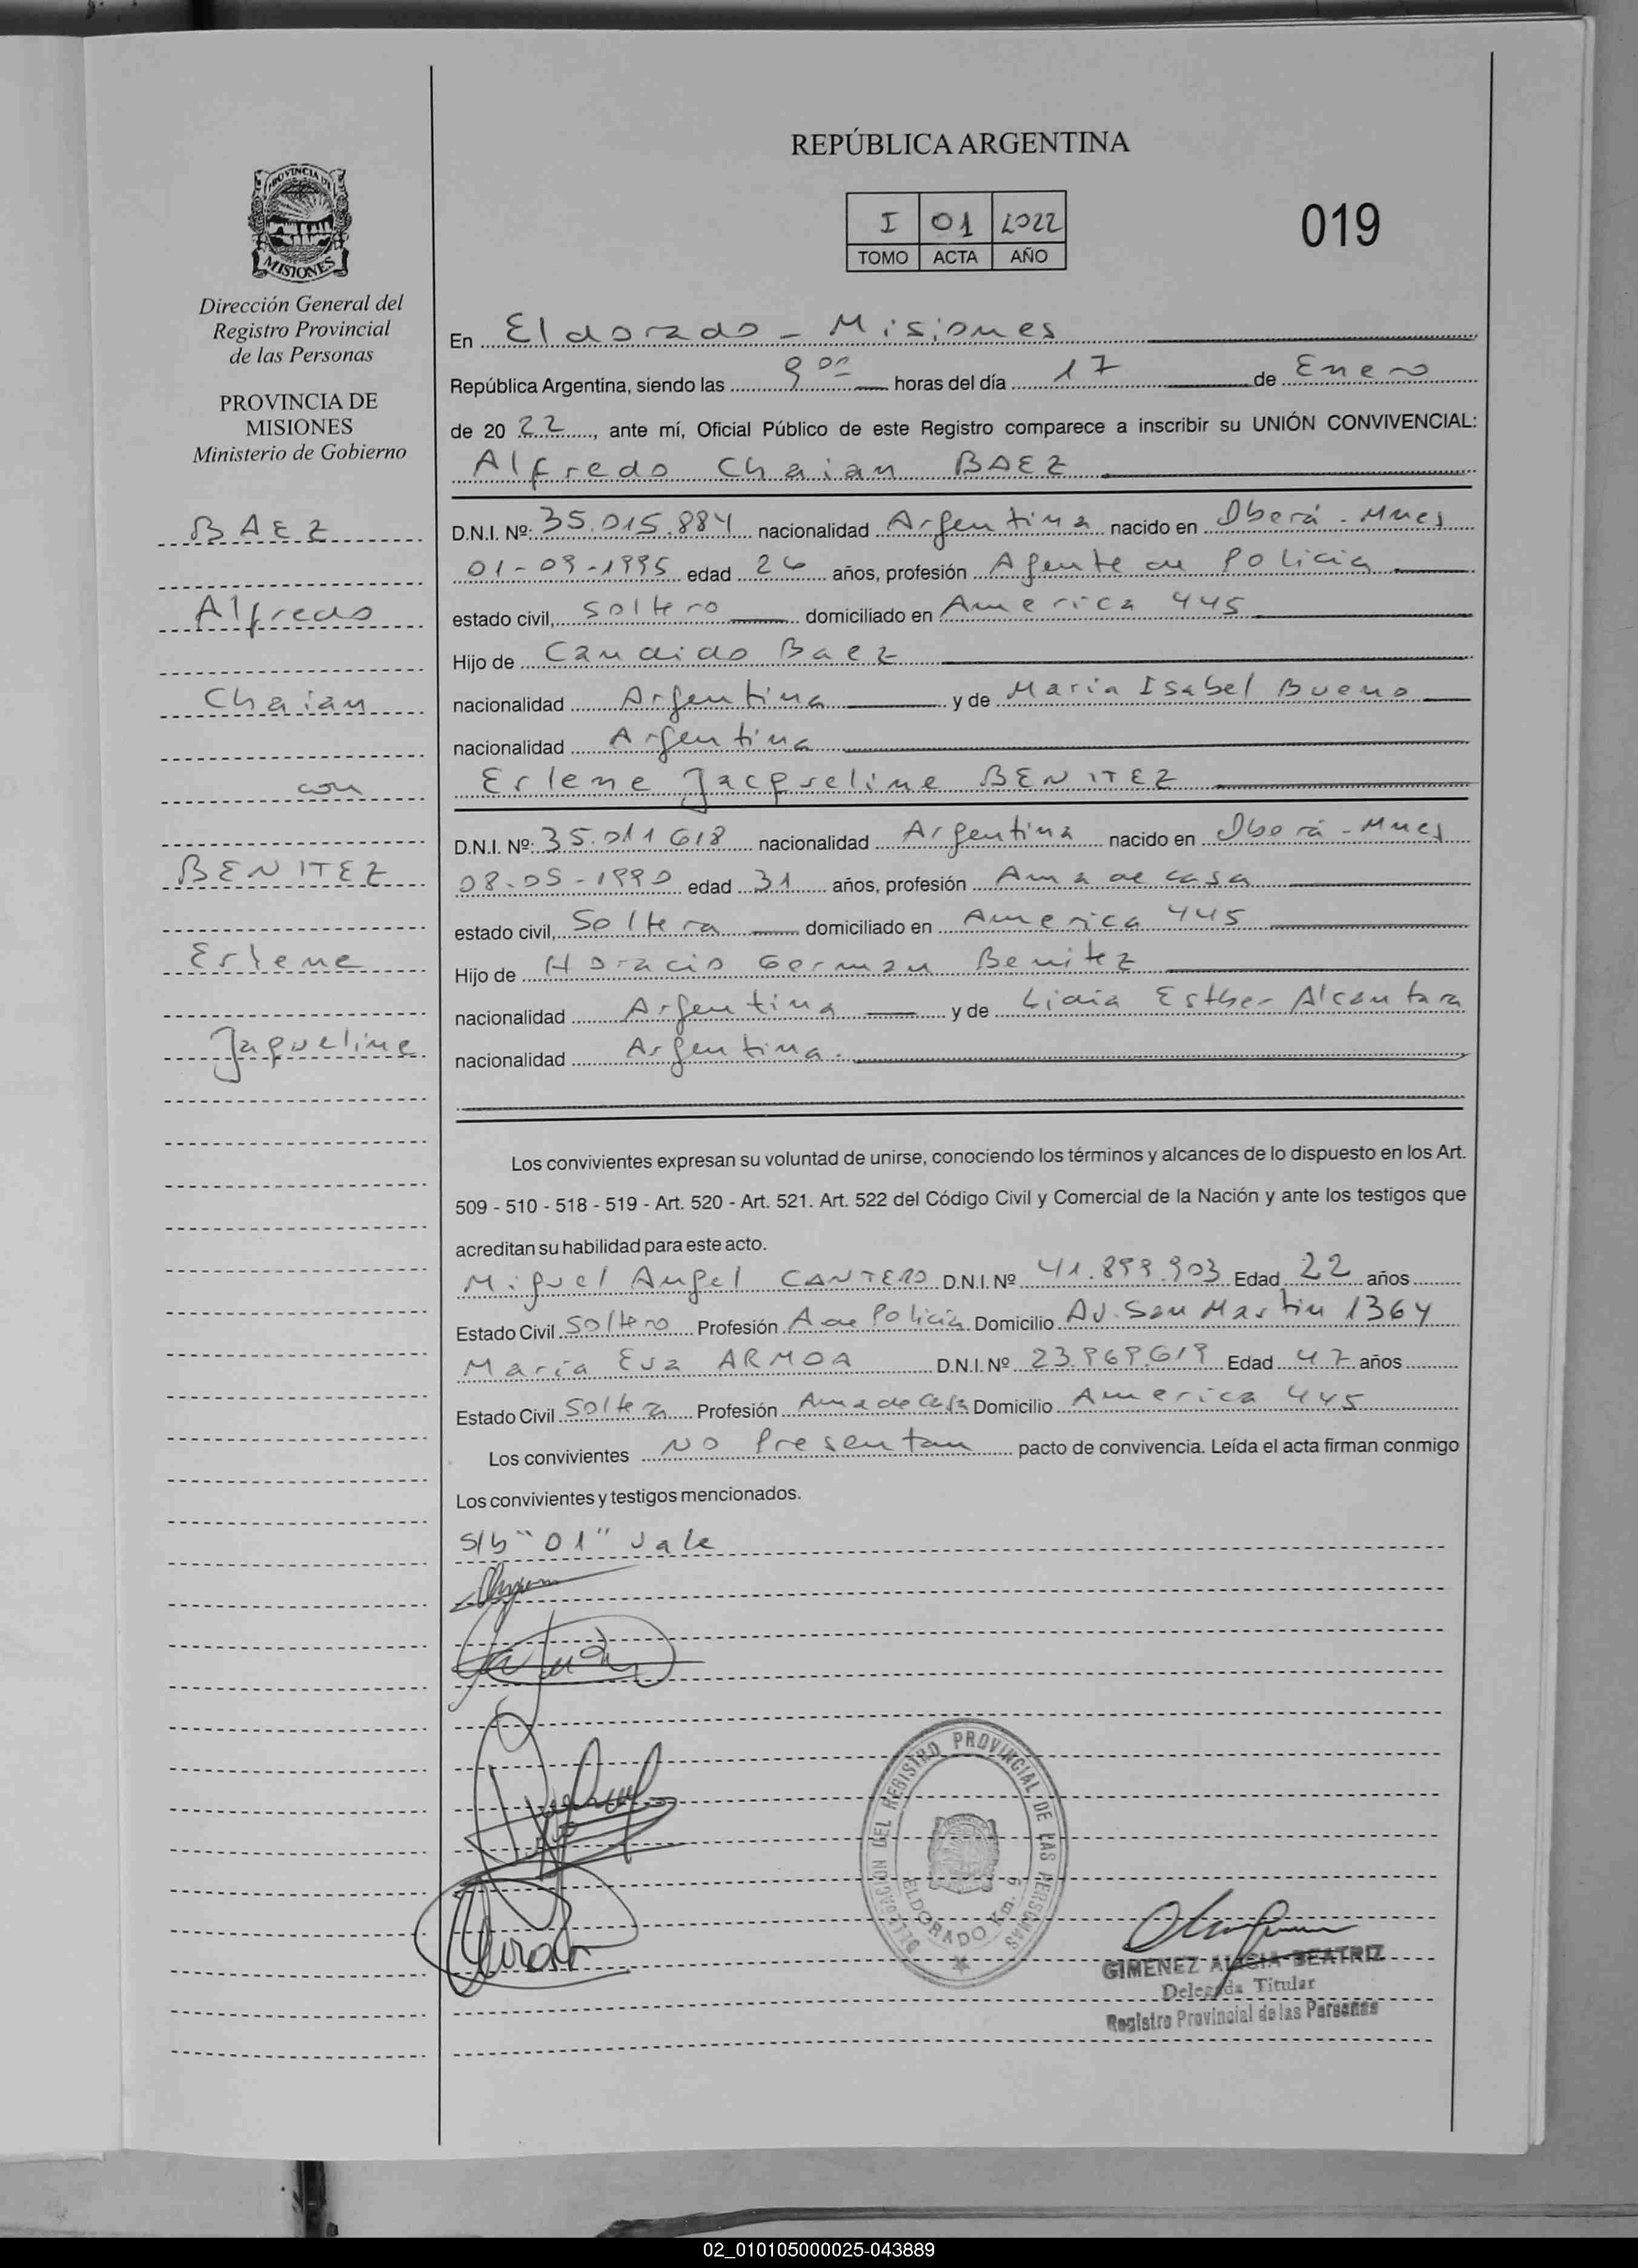 PROVINCIA DE
MISIONES
Dirección General del
Registro Provincial
de las Personas
PROVINCIA DE
MISIONES
Ministerio de Gobierno
BAEZ
Alfredo
Chaian
con
BENITEZ
Erlene
Jaqueline
REPÚBLICA ARGENTINA
I 01 2022
TOMO ACTA AÑO
019
En Eldorado - Misiones
República Argentina, siendo las 9 00 horas del día 17 de Enero
de 20 22, ante mí, Oficial Público de este Registro comparece a inscribir su UNIÓN CONVIVENCIAL:
Alfredo Chaian BAEZ
D.N.I. Nº: 35.015.884 nacionalidad Argentina nacido en Oberá - Mnes
01-09-1995 edad 26 años, profesión Agente de Policia
estado civil, soltero domiciliado en America 445
Hijo de Candido Baez
nacionalidad Argentina y de Maria Isabel Bueno
nacionalidad Argentina
Erlene Jacqueline BENITEZ
D.N.I. Nº: 35.011 618 nacionalidad Argentina nacido en Oberá - Mnes
08-05-1990 edad 31 años, profesión Ama de casa
estado civil, Soltera domiciliado en America 445
Hijo de Horacio German Benitez
nacionalidad Argentina y de Lidia Esther Alcantara
nacionalidad Argentina.
Los convivientes expresan su voluntad de unirse, conociendo los términos y alcances de lo dispuesto en los Art.
509 - 510 - 518 - 519 - Art. 520 - Art. 521. Art. 522 del Código Civil y Comercial de la Nación y ante los testigos que
acreditan su habilidad para este acto.
Miguel Angel CANTERO D.N.I. Nº 41.899.903 Edad 22 años
Estado Civil Soltero Profesión A de Policia Domicilio Av. San Martin 1364
Maria Eva ARMOA D.N.I. Nº 23.969.619 Edad 47 años
Estado Civil Soltera Profesión Ama de Casa Domicilio America 445
Los convivientes no Presentan pacto de convivencia. Leída el acta firman conmigo
Los convivientes y testigos mencionados.
S/b "01" Vale
DELEGACION DEL REGISTRO PROVINCIAL DE LAS PERSONAS
ELDORADO Km. 9
GIMENEZ ALICIA BEATRIZ
Delegada Titular
Registro Provincial de las Personas
02_010105000025-043889